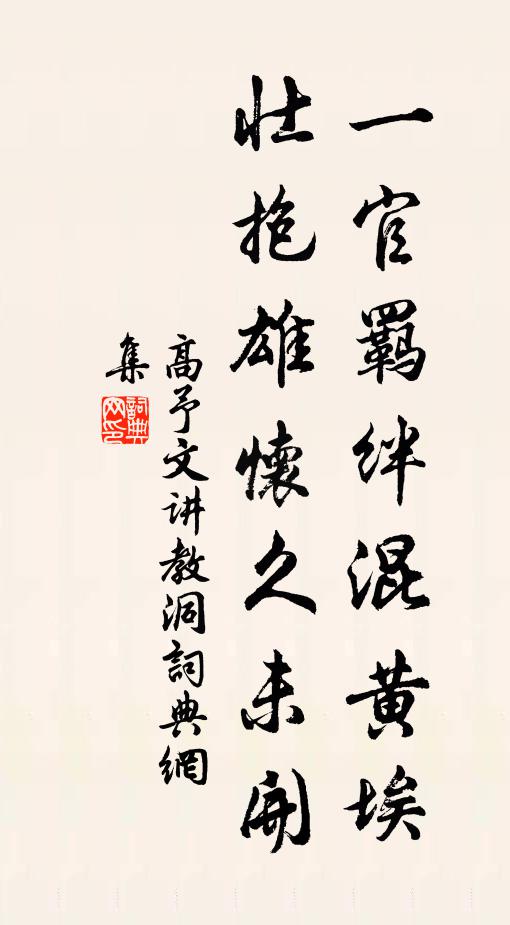 一官羁绊混黄埃
壮抱雄懷久未開
高予文讲教洞詞典網
集
詞典網印